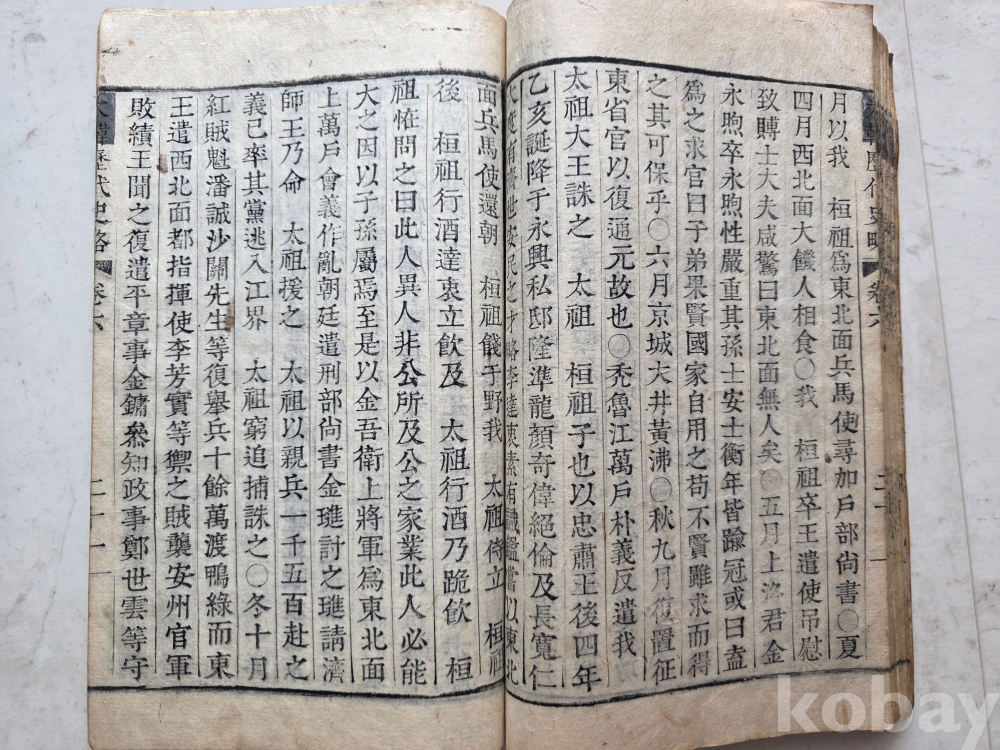 月以我 桓祖爲東北面兵馬使尋加戶部尙書〇夏
四月西北面大饑人相食〇我 桓祖卒王遣使吊慰
致賻士大夫咸驚曰東北面無人矣〇五月上洛君金
永煦卒永煦性嚴重其孫士安士衡年皆踰冠或曰盍
爲之求官曰子弟果賢國家自用之苟不賢雖求而得
之其可保乎〇六月京城大井黃沸〇秋九月復置征
東省官以復通元故也〇禿魯江萬戶朴義反遣我
太祖大王誅之 太祖 桓祖子也以忠肅王後四年
乙亥誕降于永興私邸隆準龍顔奇偉絕倫及長寬仁
大度有濟世安民之才略李達衷素有識鑑嘗以東北
面兵馬使還朝 桓祖餞于野我 太祖侍立 桓祖
後 桓祖行酒達衷立飮及 太祖行酒乃跪飮 桓
祖怪問之曰此人異人非公所及公之家業此人必能
大之因以子孫屬焉至是以金吾衛上將軍爲東北面
上萬戶會義作亂朝廷遣刑部尙書金璡討之璡請濟
師王乃命 太祖援之 太祖以親兵一千五百赴之
義已率其黨逃入江界 太祖窮追捕誅之〇冬十月
紅賊魁潘誠沙關先生等復舉兵十餘萬渡鴨綠而東
王遣西北面都指揮使李芳實等禦之賊襲安州官軍
敗績王聞之復遣平章事金鏞叅知政事鄭世雲等守
大韓歷代史略 卷六 二十一
kobay